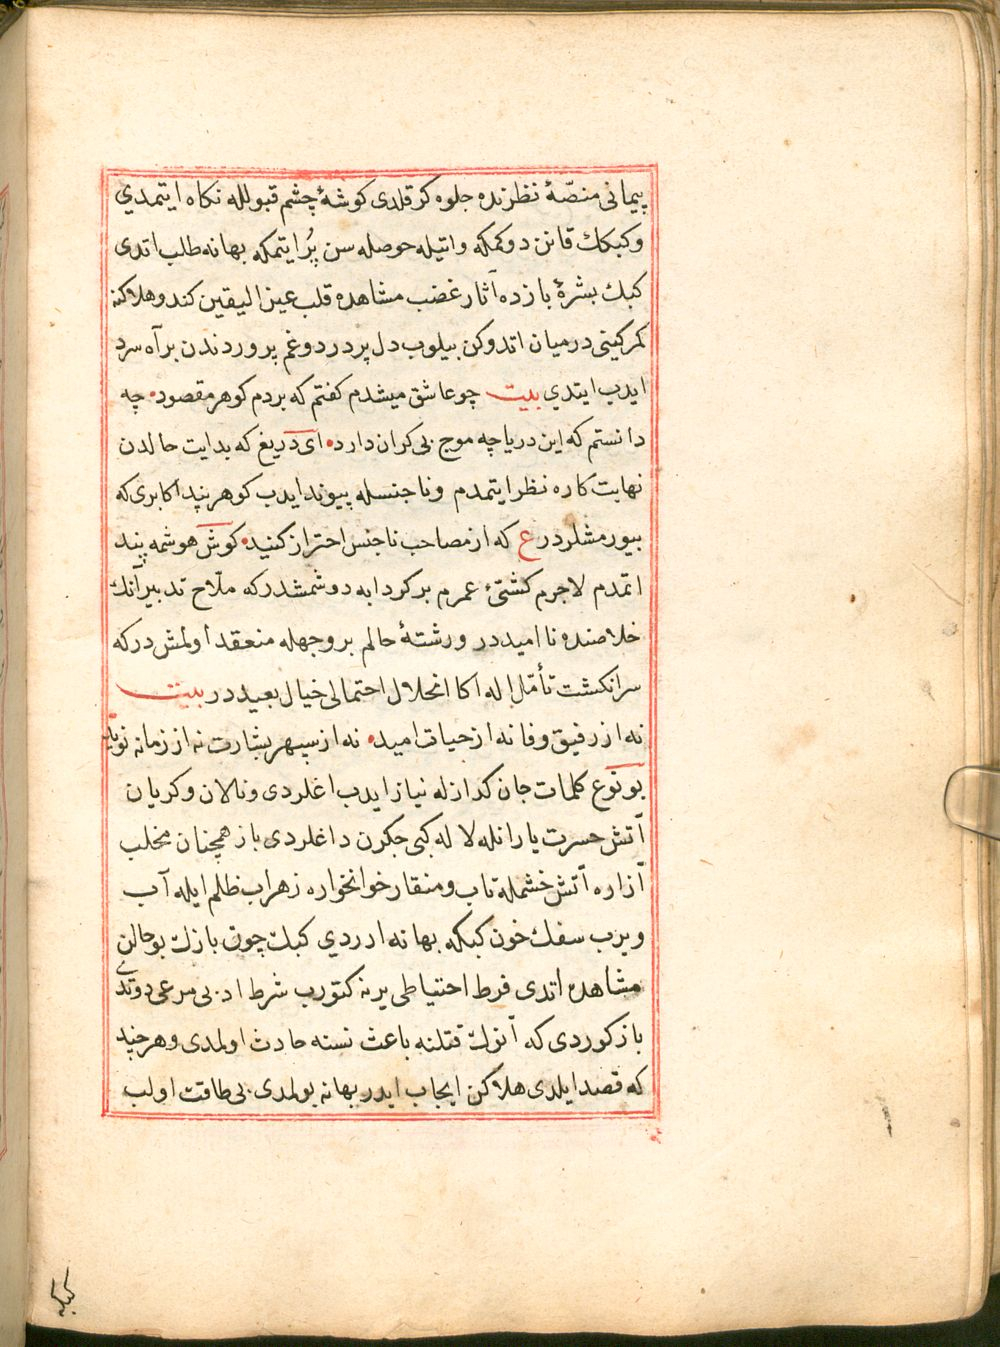 پیمانی منصّهٔ نظرنده جلوه كر قلدی كوشهٔ چشم قبولله نكاه ایتمدي
وكبكك قانن دوكمكه واتیله حوصله سن پُر ایتمكه بهانه طلب اتدی
كبك بشرهٔ بازده آثار غضب مشاهده قلب عین الیقین كندو هلاكنه
كمر كینی درمیان اتدوكن بیلوب دل پر درد وغم پروردندن بر آه سرد
ایدب ایتدي بیت چو عاشق میشدم كفتم كه بردم كوهر مقصود چه
دانستم كه این دریا چه موج بی كران دارد ای دریغ كه بدایت حالدن
نهایت كاره نظر ایتمدم وناجنسله پیوند ایدب كوهر پند اكابری كه
بیورمشلردر ع كه از مصاحب ناجنس احتراز كنید كوش هوشمه پند
اتمدم لاجرم كشتیٔ عمرم بر كردابه دوشمشدر كه ملّاح تدبیر آنك
خلاصنده ناامیددر ورشتهٔ حالم بر وجهله منعقد اولمش در كه
سرانكشت تأمّل اله اكا انحلال احتمالی خیال بعیددر بیت
نه از رفیق وفا نه از حیات امید نه از سپهر بشارت نه از زمانه نوید
بو نوع كلمات جان كدازله نیاز ایدب اغلردی ونالان وكریان
آتش حسرت یارانله لاله كبی جكرن داغلردی باز همچنان مخلب
آزاره آتش خشمله تاب ومنقار خوانخواره زهراب ظلم ایله آب
ویرب سفك خون كبكه بهانه اردي كبك چون بازك بو حالن
مشاهده اتدی فرط احتیاطی یرنه كتورب شرط ادبی مرعی دوتدی
باز كوردی كه آنوك قتلنه باعث نسنه حادث اولمدی وهر چند
كه قصد ایلدی هلاكن ایجاب ایدر بهانه بولمدی بی طاقت اولب
كبكه